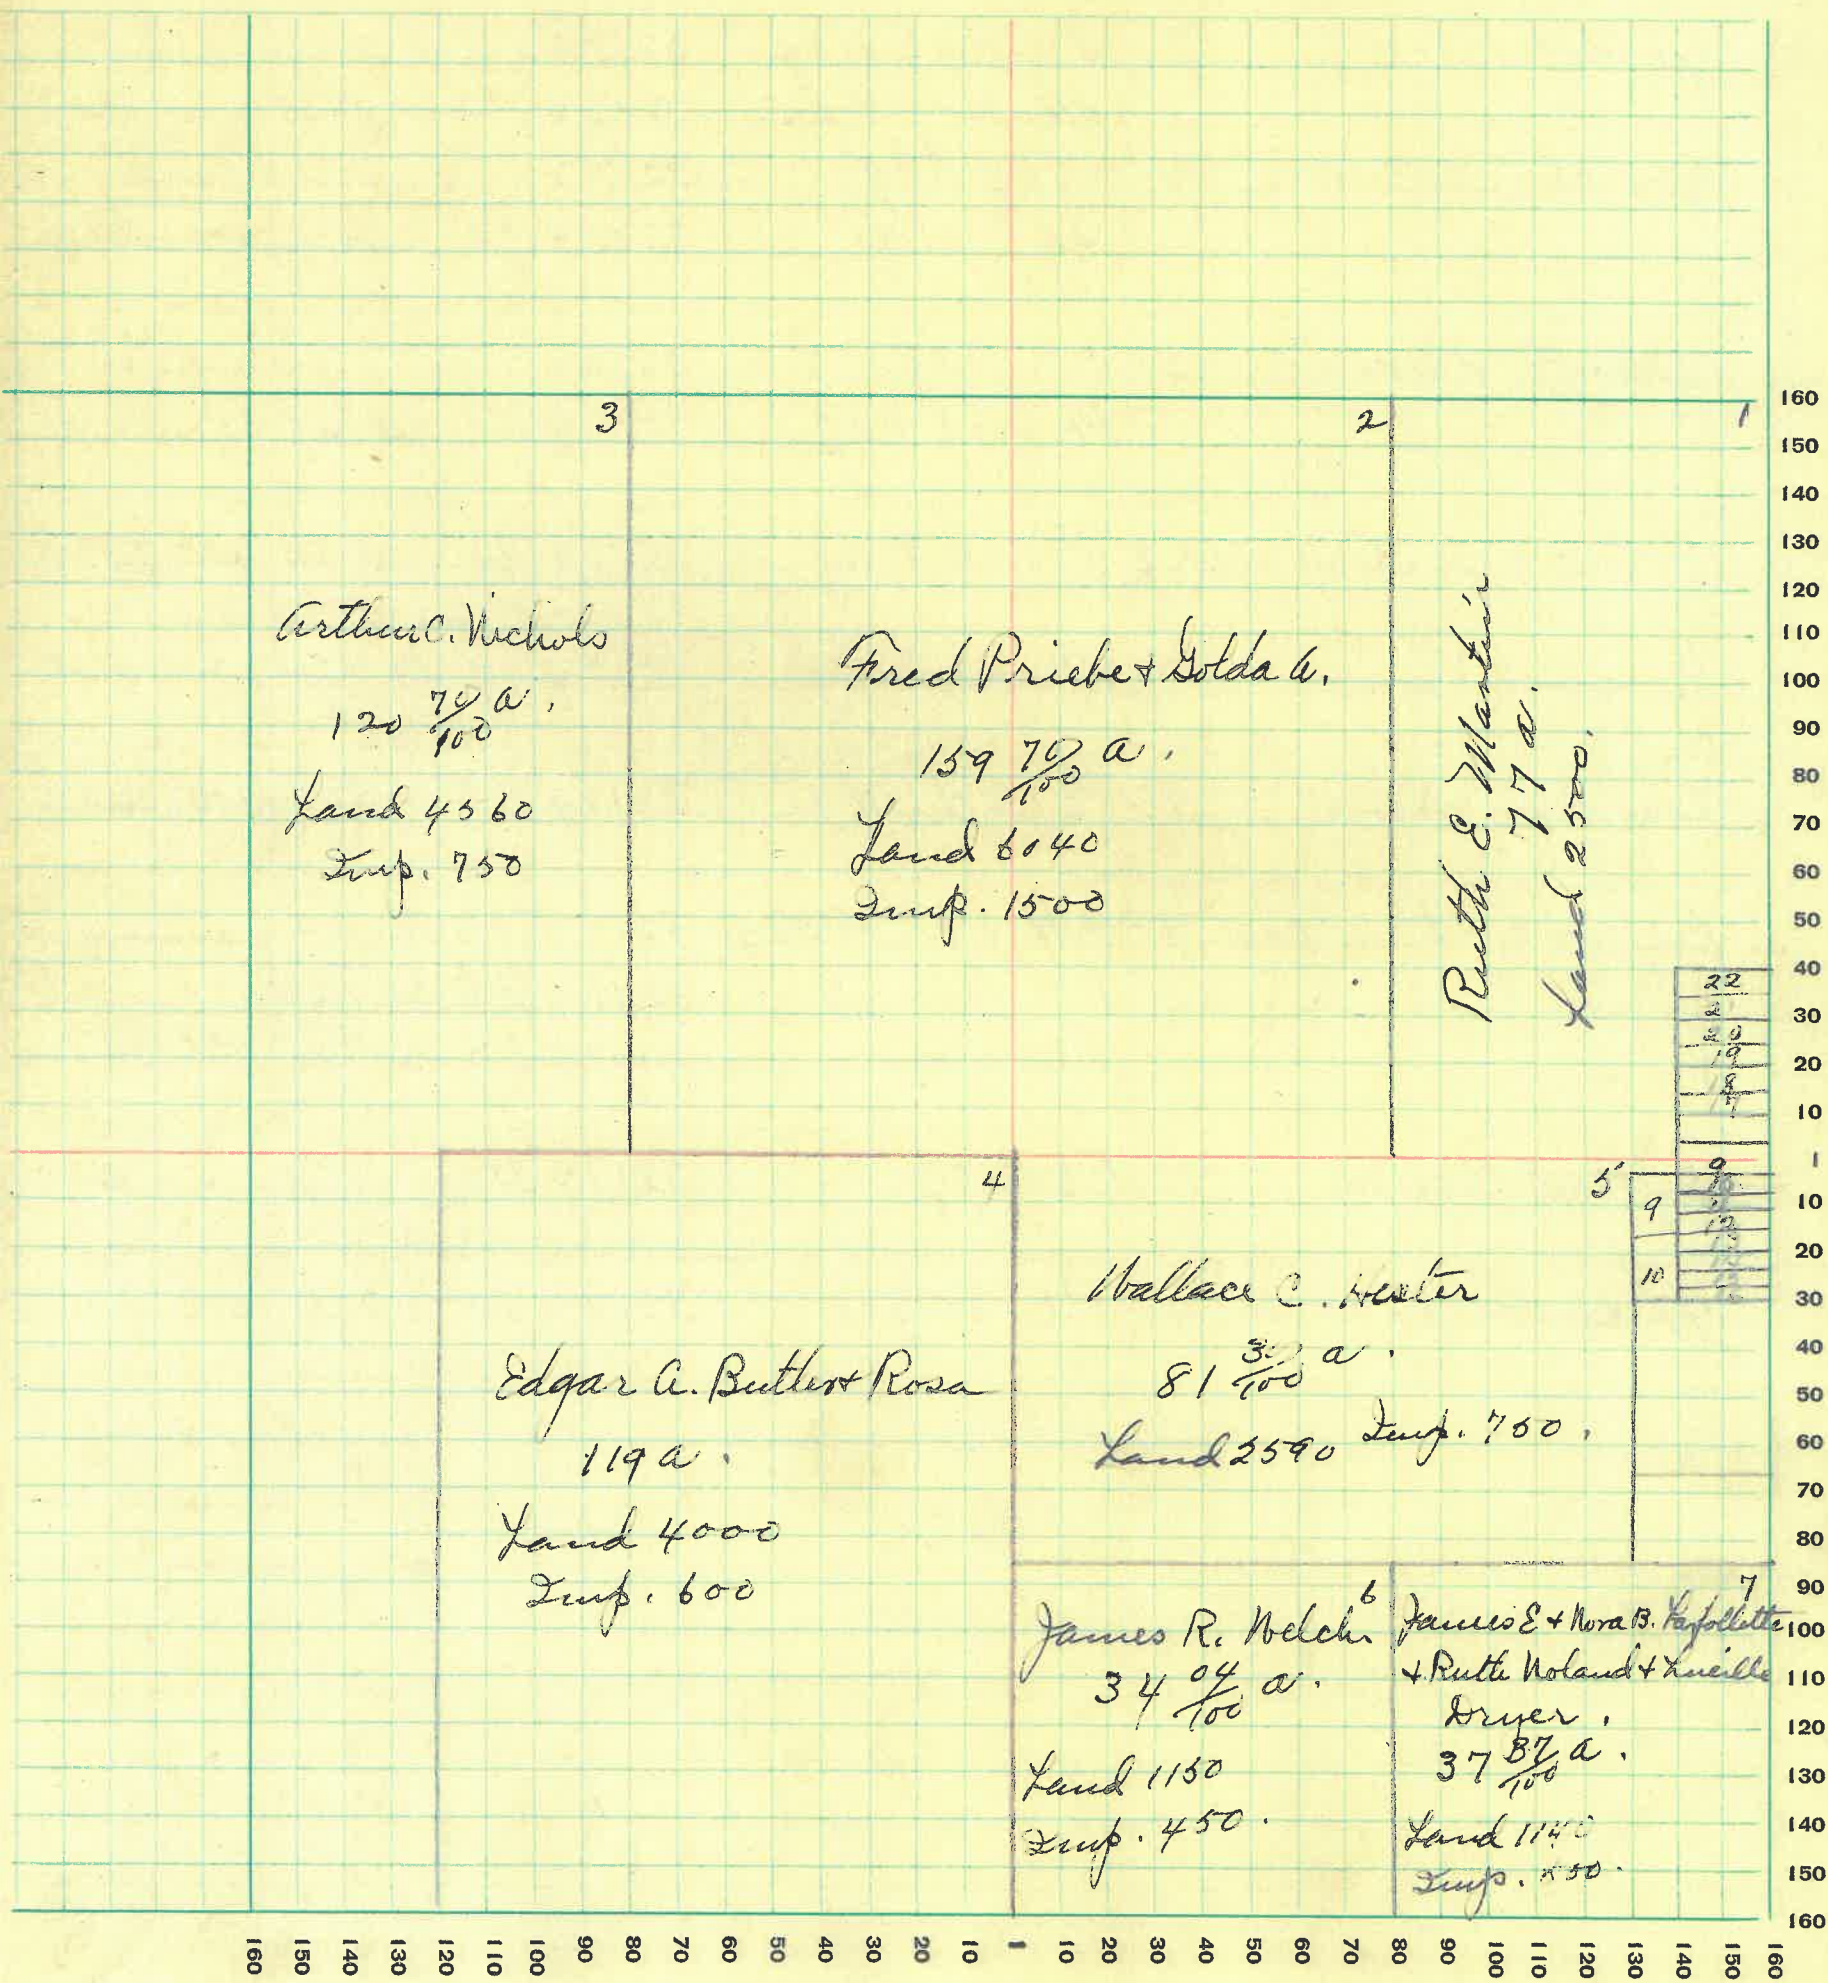 3
2
1
Arthur C. Nichols
120 70/100 a.
Land 4560
Imp. 750
Fred Priebe + Golda A.
159 70/100 a.
Land 6040
Imp. 1500
Ruth E. Martin
77 a.
Land 2500.
22
21
20
19
18
17
4
5
9
9
10
Edgar A. Butler + Rosa
119 a.
Land 4000
Imp. 600
Wallace C. Hester
81 30/100 a.
Land 2590 Imp. 750.
6
James R. Welch
34 04/100 a.
Land 1150
Imp. 450.
7
James E + Nora B. Lafollette
+ Ruth Noland + Lucille
Dryer.
37 87/100 a.
Land
Imp.
160
150
140
130
120
110
100
90
80
70
60
50
40
30
20
10
1
10
20
30
40
50
60
70
80
90
100
110
120
130
140
150
160
160 150 140 130 120 110 100 90 80 70 60 50 40 30 20 10 1 10 20 30 40 50 60 70 80 90 100 110 120 130 140 150 160